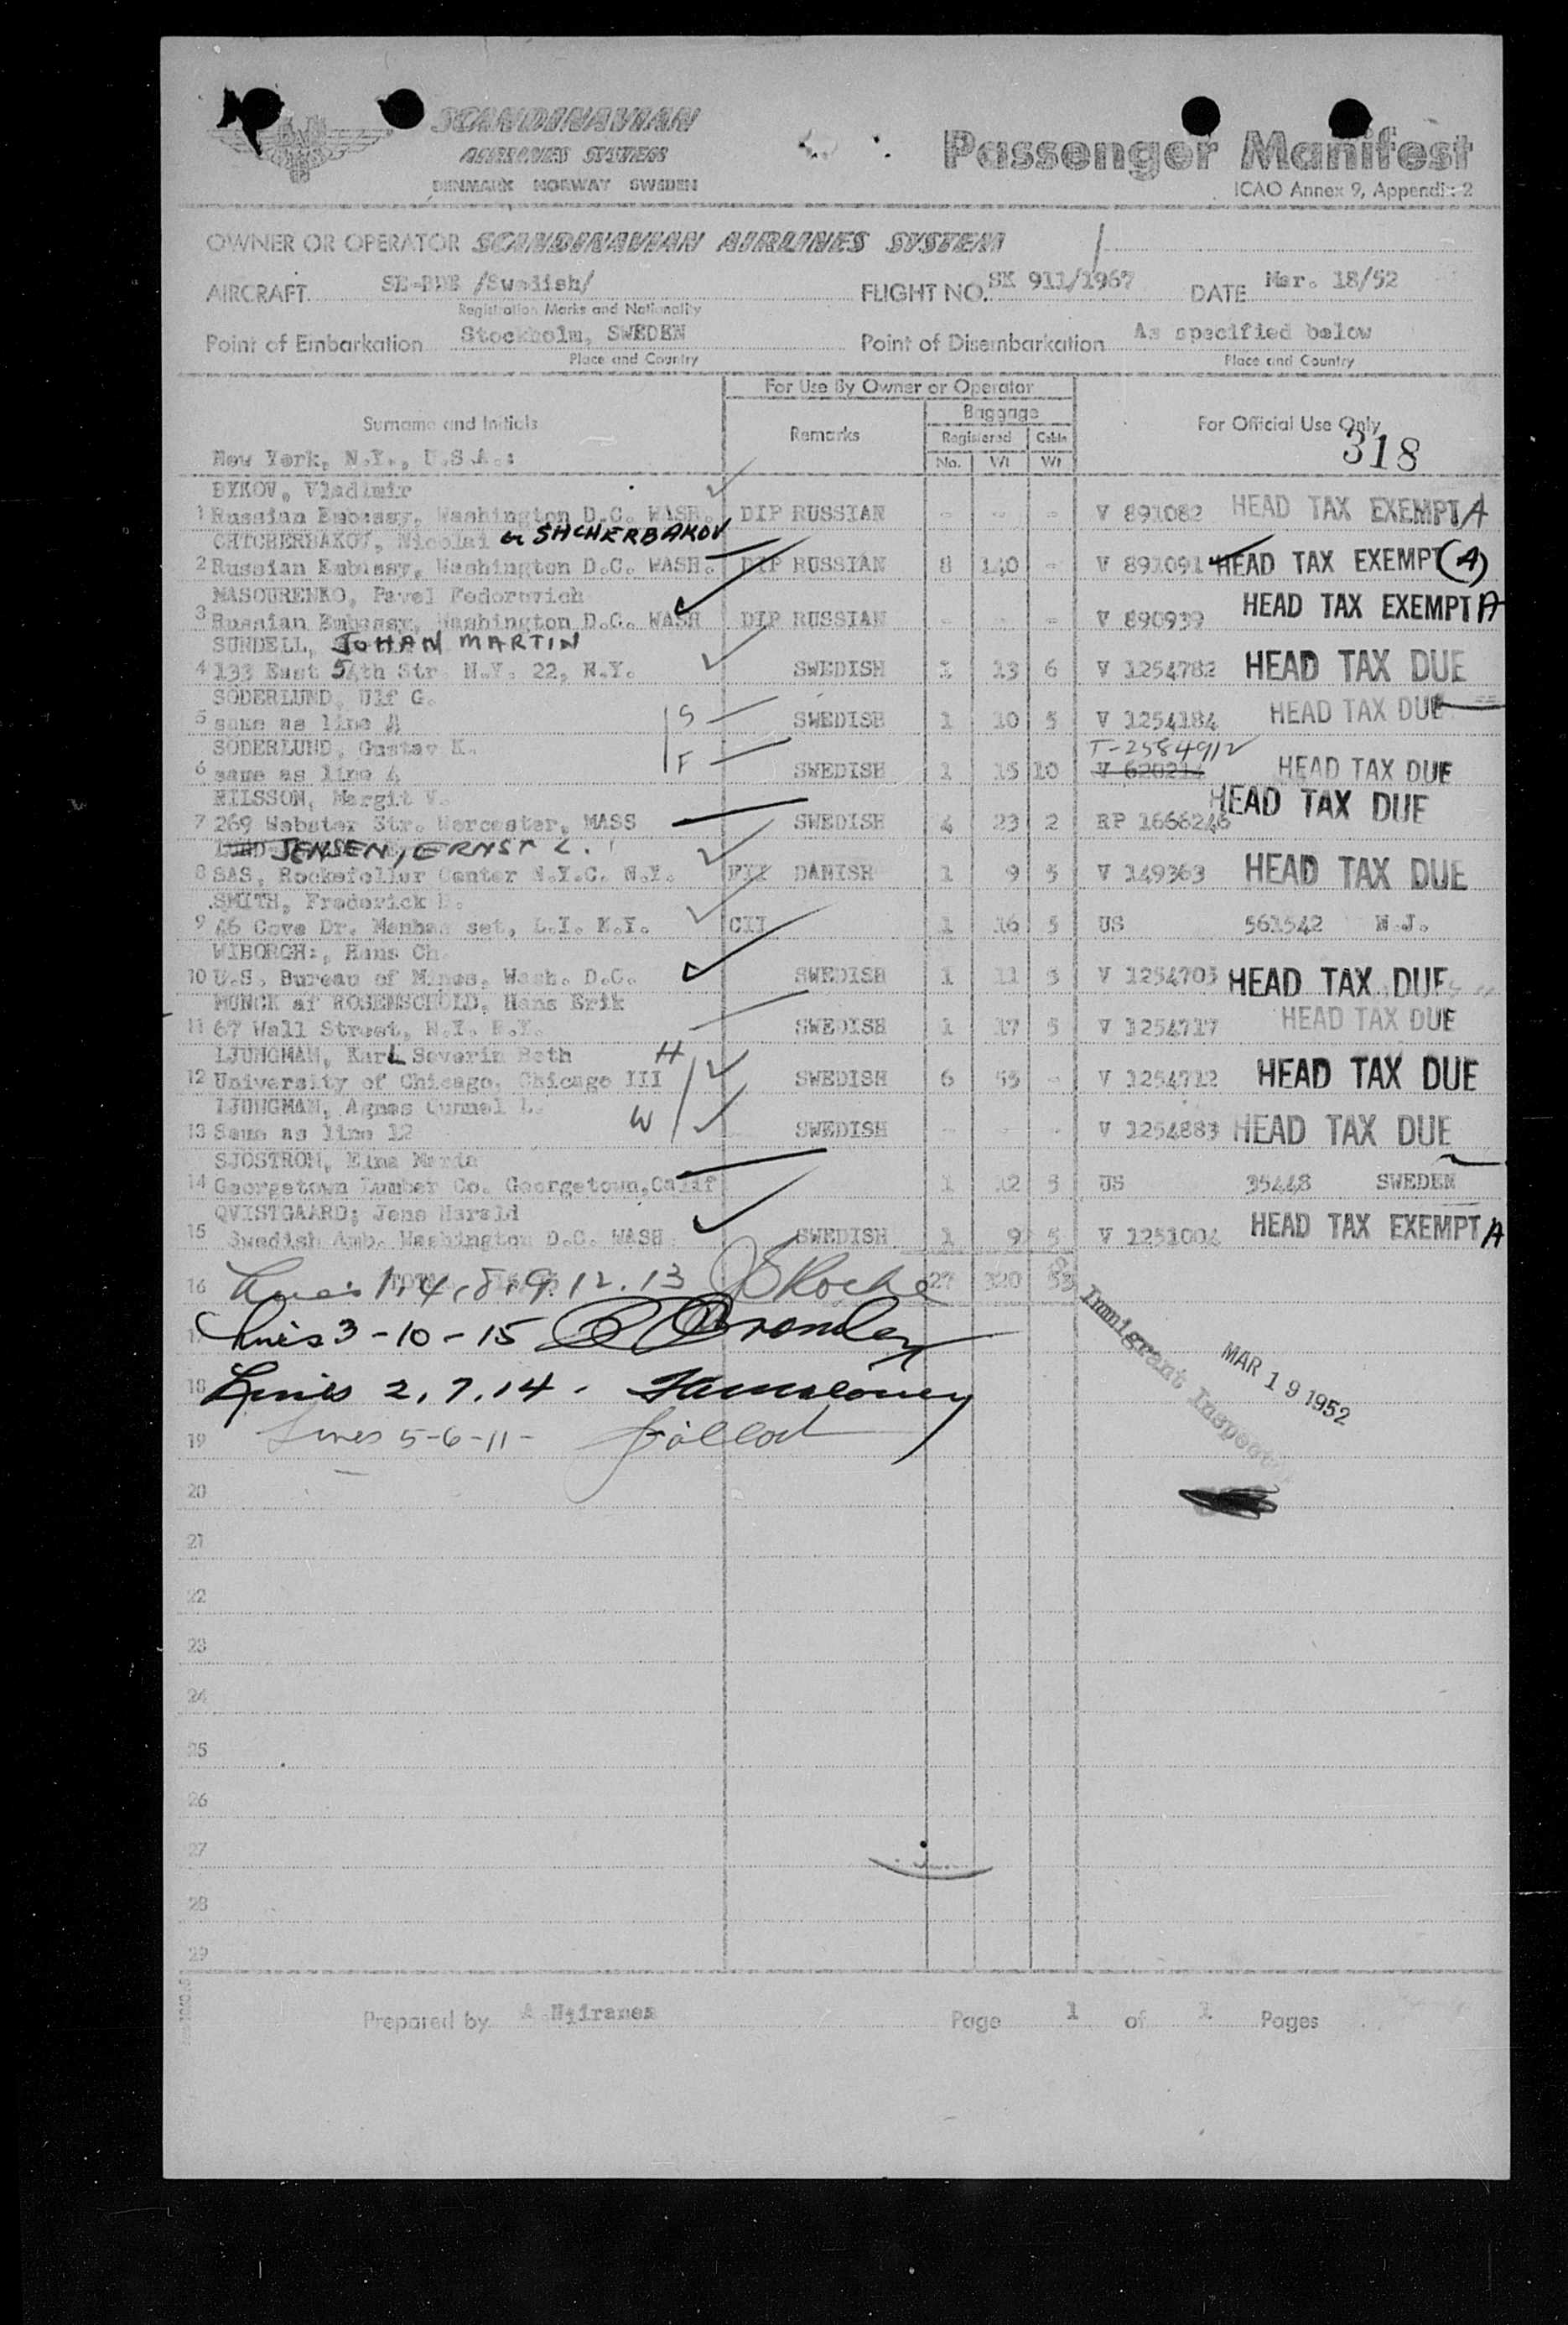 SCANDINAVIAN
AIRLINES SYSTEM
DENMARK NORWAY SWEDEN
Passenger Manifest
ICAO Annex 9, Appendix 2
OWNER OR OPERATOR SCANDINAVIAN AIRLINES SYSTEM
AIRCRAFT /Swedish/ FLIGHT NO. SK 911/1967 DATE Mar. 18/52
Registration Marks and Nationality
Point of Embarkation Stockholm, SWEDEN Point of Disembarkation As specified below
Place and Country Place and Country
For Use By Owner or Operator
Baggage
Surname and Initials Remarks Registered Cabin For Official Use Only
No. Wt Wt
318
New York, N.Y., U.S.A.:
BYKOV, Vladimir
1 Russian Embassy, Washington D.C. WASH. DIP RUSSIAN - - - V 891082 HEAD TAX EXEMPT A
CHTCHERBAKOV, Nicolai or SHCHERBAKOV
2 Russian Embassy, Washington D.C. WASH. DIP RUSSIAN 8 140 - V 891091 HEAD TAX EXEMPT (A)
MASOURENKO, Pavel Fedorovich
3 Russian Embassy, Washington D.C. WASH DIP RUSSIAN - - - V 890939 HEAD TAX EXEMPT A
SUNDELL, JOHAN MARTIN
4 133 East 54th Str. N.Y. 22, N.Y. SWEDISH 1 13 6 V 1254782 HEAD TAX DUE
SODERLUND, Ulf G.
5 same as line 4 S SWEDISH 1 10 5 V 1254184 HEAD TAX DUE
SODERLUND, Gustav K. T-2584912
6 same as line 4 F SWEDISH 1 15 10 HEAD TAX DUE
NILSSON, Margit V.
7 269 Webster Str. Worcester, MASS SWEDISH 4 23 2 RP 1666246 HEAD TAX DUE
JENSEN, ERNST L.
8 SAS, Rockefeller Center N.Y.C. N.Y. DANISH 1 9 5 V 149363 HEAD TAX DUE
SMITH, Frederick
9 46 Cove Dr. Manhas set, L.I. N.Y. CII 1 16 5 US 561542 N.J.
WIBORGH:, Hans Ch.
10 U.S. Bureau of Mines, Wash. D.C. SWEDISH 1 11 5 V 1254703 HEAD TAX DUE
MUNCK af ROSENSCHOLD, Hans Erik
11 67 Wall Street, N.Y. N.Y. SWEDISH 1 17 5 V 1254717 HEAD TAX DUE
LJUNGMAN, KarL Severin Seth H
12 University of Chicago, Chicago III SWEDISH 6 55 - V 1254712 HEAD TAX DUE
LJUNGMAN, Agnes Gunnel L. W
13 Same as line 12 SWEDISH - - - V 1254883 HEAD TAX DUE
SJOSTROM, Elna Maria
14 Georgetown Lumber Co. Georgetown, Calif 1 12 5 US 35448 SWEDEN
QVISTGAARD; Jens Harald
15 Swedish Amb. Washington D.C. WASH SWEDISH 1 9 5 V 1251004 HEAD TAX EXEMPT A
16 Lines 1, 4, 8, 9, 12, 13 Roche 27 320 53
17 Lines 3-10-15
18 Lines 2, 7, 14.
19 Lines 5-6-11-
Immigrant Inspector
MAR 19 1952
20
21
22
23
24
25
26
27
28
29
Prepared by Page 1 of 1 Pages